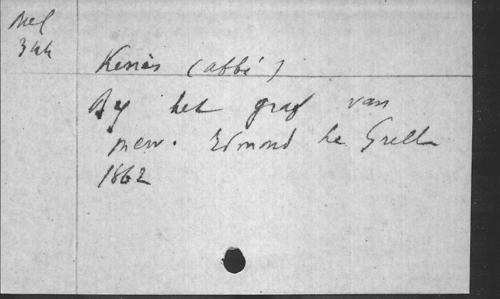 Mel
344
Keniès (abbé)
By het graf van
mew. Edmond de Grelle
1862